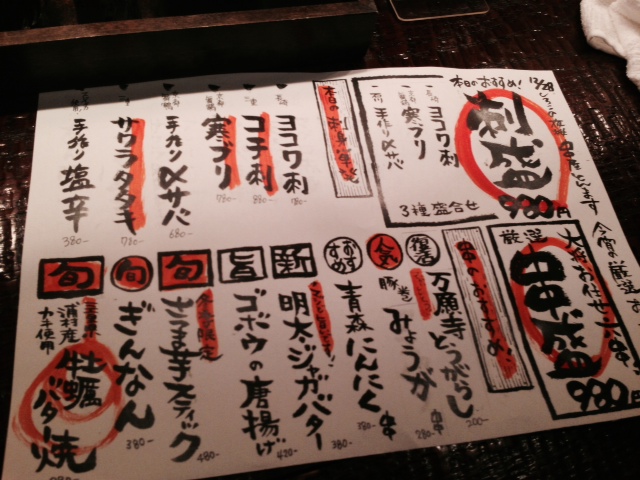 12/28
本日のおすすめ!
刺盛
980円
長崎
ヨコワ刺
寒ブリ
手作り〆サバ
3種盛合せ
本日の刺身・単品
ヨコワ刺
780-
コチ刺
880-
寒ブリ
780-
手作り〆サバ
680-
サワラタタキ
780-
手作り塩辛
380-
厳選
串盛
980円
串のおすすめ!
復活
万願寺とうがらし
串
200-
人気
豚巻みょうが
串
280-
おすすめ
青森にんにく
串
380-
新
明太・ジャガバター
380-
旨
ゴボウの唐揚げ
420-
旬
冬季限定
さつま芋スティック
480-
旬
ぎんなん
380-
旬
三重県
浦村産
カキ使用
牡蠣バター焼